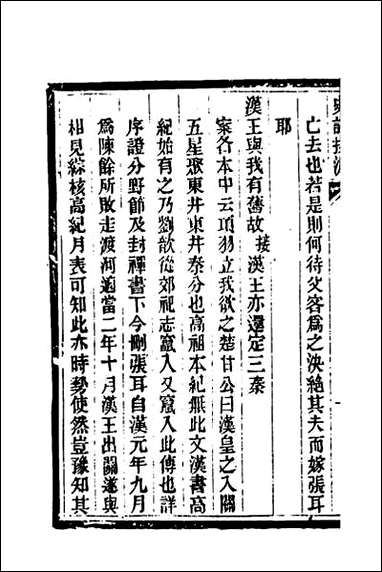 史記探源
亡去也若是則何待父客為之決絕其夫而嫁張耳
耶
漢王與我有舊故 接漢王亦還定三秦
案各本中云項羽立我欲之楚甘公曰漢皇之入關
五星聚東井東井秦分也高祖本紀無此文漢書高
紀始有之乃劉歆從郊祀志竄入又竄入此傳也詳
序證分野節及封禪書下今刪張耳自漢元年九月
為陳餘所敗走渡河適當二年十月漢王出關遂與
相見綜核高紀月表可知此亦時勢使然豈豫知其